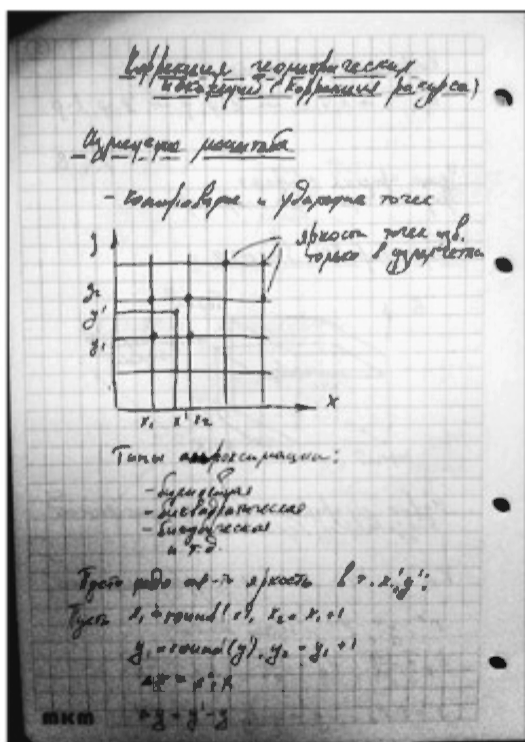 Коррекция геометрических
(Коррекция ракурса)
Изменение масштаба
- Копирование и удаление точек
y
яркость точек изв.
только в
y₂
y'
y₁
x₁ x' x₂
x
Типы аппроксимации:
- билинейная
- биквадратическая
- бикубическая
и т.д.
Пусть надо яркость в т. x', y':
Пусть x₁ = round x₂ = x₁ + 1
y₁ = round(y'), y₂ = y₁ + 1
Δy = y' - y
mkm